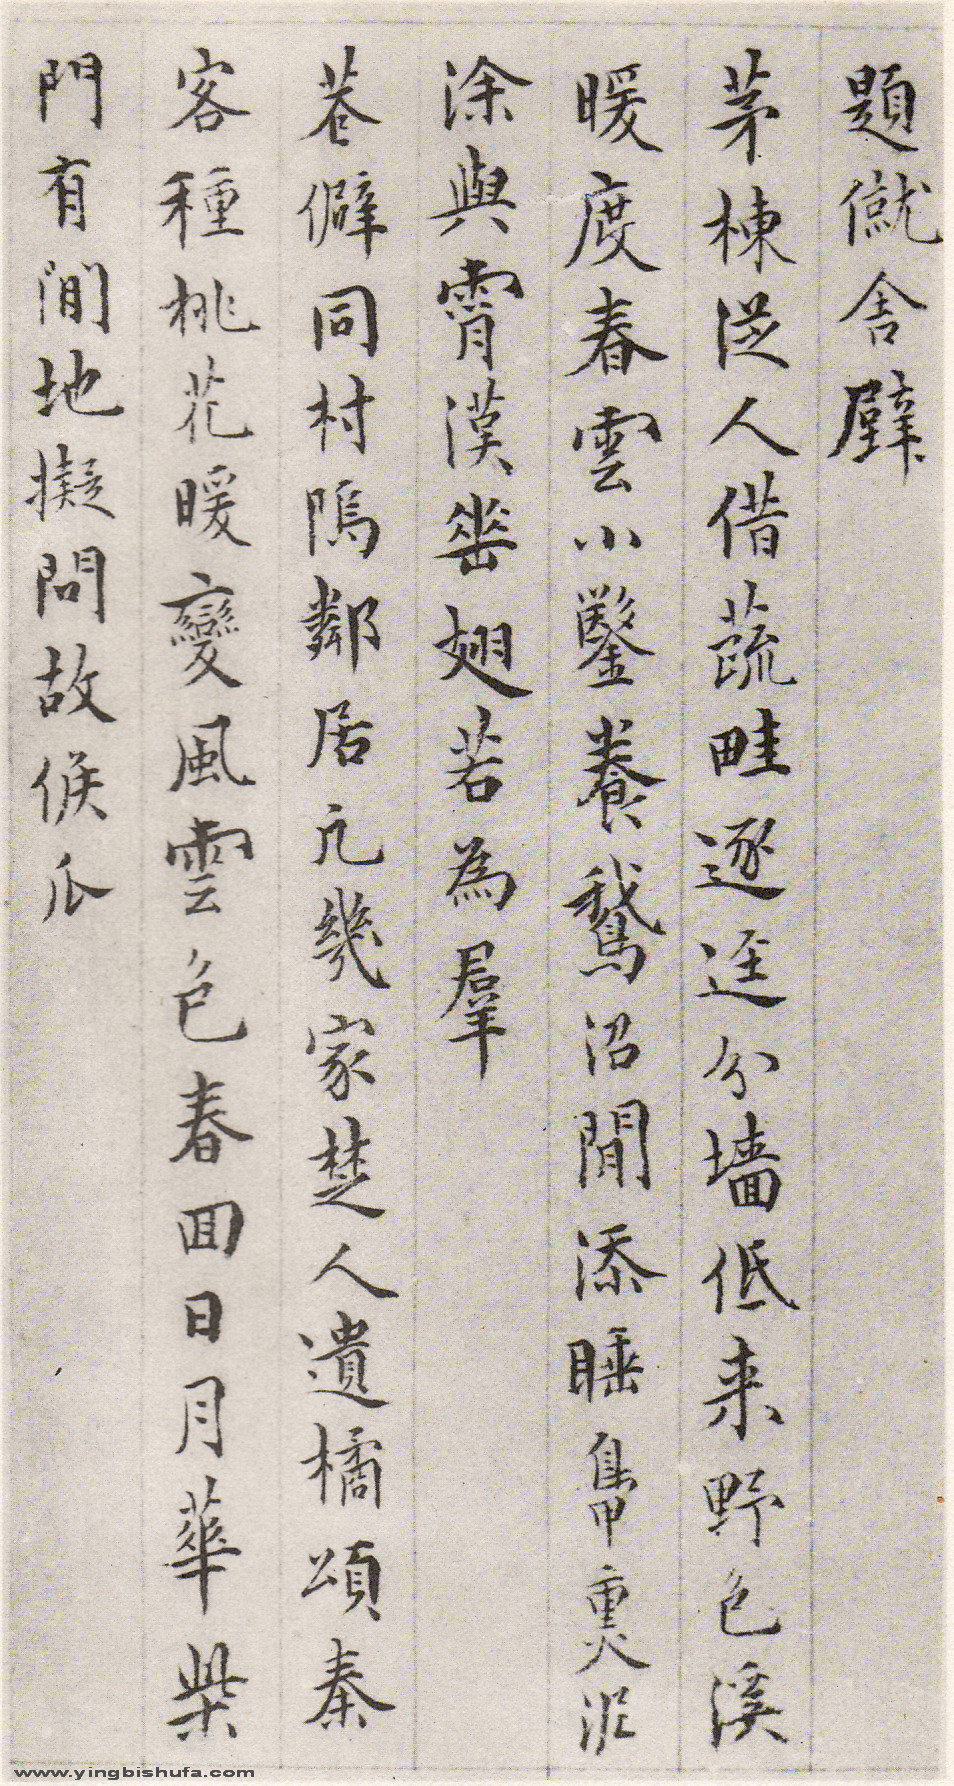 題僦舍壁
茅棟從人借蔬畦逐逕分墻低来野色溪
暖度春雲小鑿養鵞沼閒添睡鴨熏泥
涂與霄漢垂翅若為羣
巷僻同村隖鄰居凢幾家楚人遺橘頌秦
客種桃花暖變風雲色春囬日月華柴
門有閒地擬問故侯瓜
www.yingbishufa.com